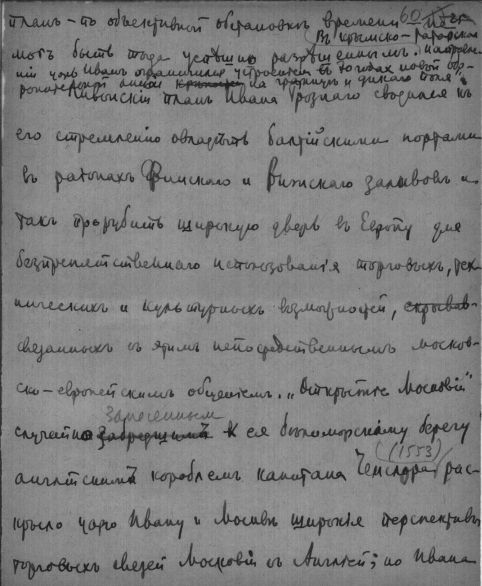 60
планъ - по объективной обстановкѣ времени
Въ крымско-татарском
могъ быть тогда успѣшно разрѣшеннымъ.
царь Иванъ ограничился устройствомъ въ то годахъ новой обо-
ронительной линіи на границѣ и дикаго поля.
Ливонскій планъ Ивана Грознаго сводился къ
его стремленію овладѣть балтійскими портами
въ районахъ Финскаго и Рижскаго заливовъ и
такъ прорубить широкую дверь въ Европу для
безпрепятственнаго использованія торговыхъ, тех-
ническихъ и культурныхъ возможностей,
связанныхъ съ этимъ непосредственнымъ москов-
ско-европейскимъ общеніемъ. „Открытіе Московій"
занесеннымъ
случайно забредшимъ къ ея бѣломорскому берегу
(1553)
англійскимъ кораблемъ капитана Ченслера рас-
крыло царю Ивану и Москвѣ широкія перспективы
торговыхъ связей Московіи съ Англіей; но Ивана